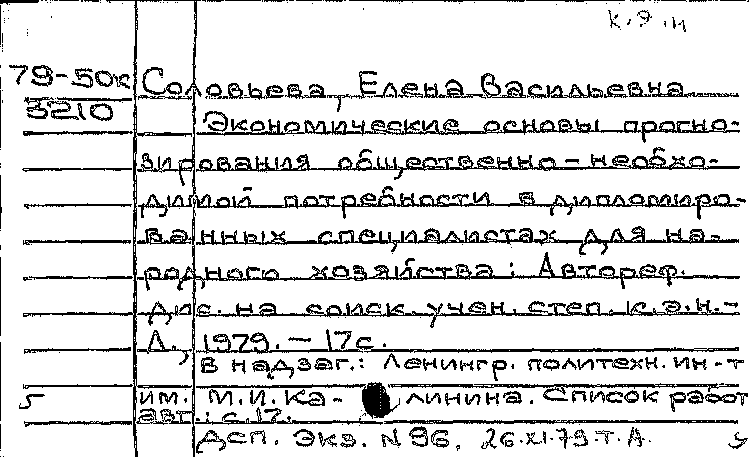 к.э.н
79-50к Соловьева, Елена Васильевна
3210 Экономические основы прогно-
зирования общественно-необхо-
димой потребности в дипломиро-
ванных специалистах для на-
родного хозяйства: Автореф.
дис. на соиск. учен. степ. к.э.н.-
Л., 1979. – 17с.
В надзаг.: Ленингр. политехн. ин-т
5 им. М.И. Ка- линина. Список работ
авт.: с.17.
ДСП. Экз. N 96. 26.XI.79.Т.А.